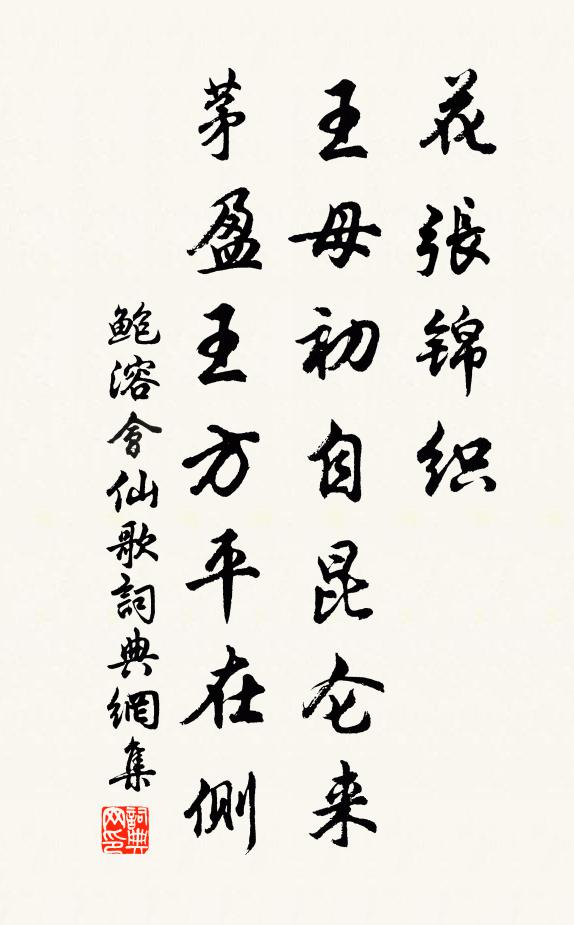 花張锦织
王母初自昆仑来
茅盈王方平在側
鲍溶會仙歌詞典網集
詞典网印